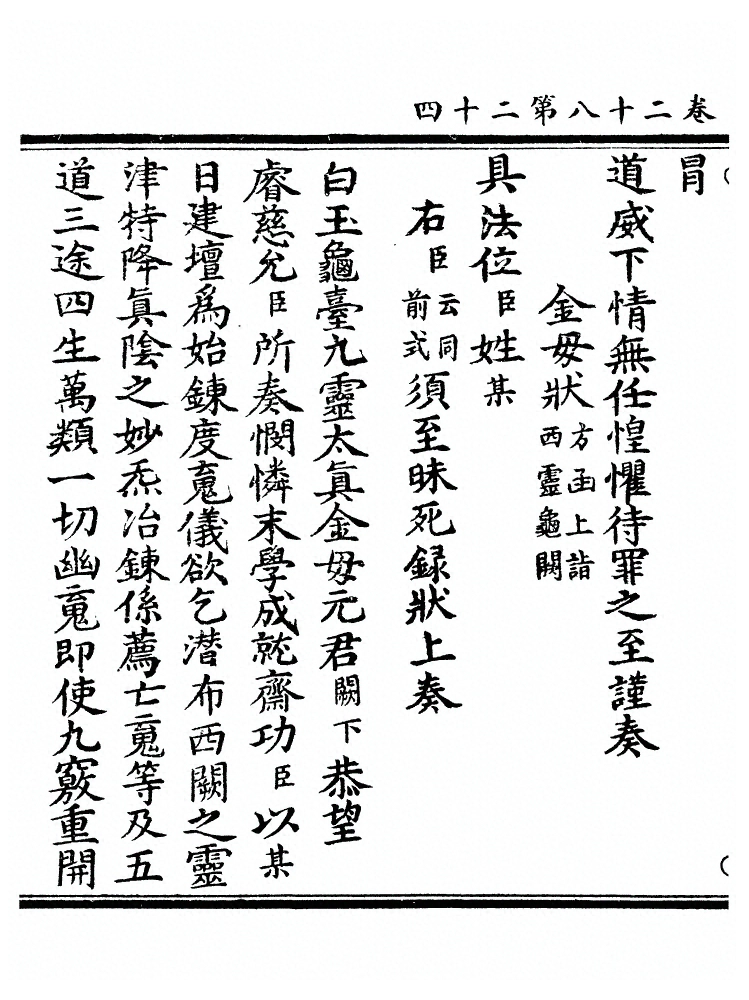 卷二十八第二十四
冐
道威下情無任惶懼待罪之至謹奏
金毋狀方函上詣西靈龜闕
具法位臣姓某
右臣云同前式須至昧死録狀上奏
白玉龜臺九靈太眞金毋元君闕下恭望
睿慈允臣所奏憫憐末學成就齋功臣以某
日建壇爲始鍊度䰟儀欲乞潜布西闕之靈
津特降眞陰之妙炁冶鍊係薦亡䰟等及五
道三途四生萬類一切幽䰟即使九竅重開